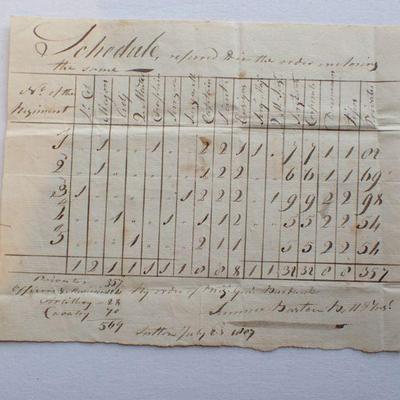 Schedule, referred to in the order enclosing
the same
No of the Regiment Lt Col Major Adj Q Master Chaplain Surgn Surg mate Captain Lieut Ensigns Serj Maj Q M Serj Serjeants Corporals Drummers Fifers Privates
1 1 1 2 2 1 1 7 7 1 1 82
2 1 2 2 2 6 6 1 1 69
3 1 1 2 2 2 1 9 9 2 2 98
4 1 1 1 1 2 5 5 2 2 54
5 1 2 1 1 5 5 2 2 54
1 2 1 1 1 1 1 8 8 8 1 1 32 8 8 357
Privates 357
Officers & Musicians 114 By order of Maj Genl Burbank
Artillery 28
Cavalry 70 Sumner Barton
569 Sutton July 23 1807